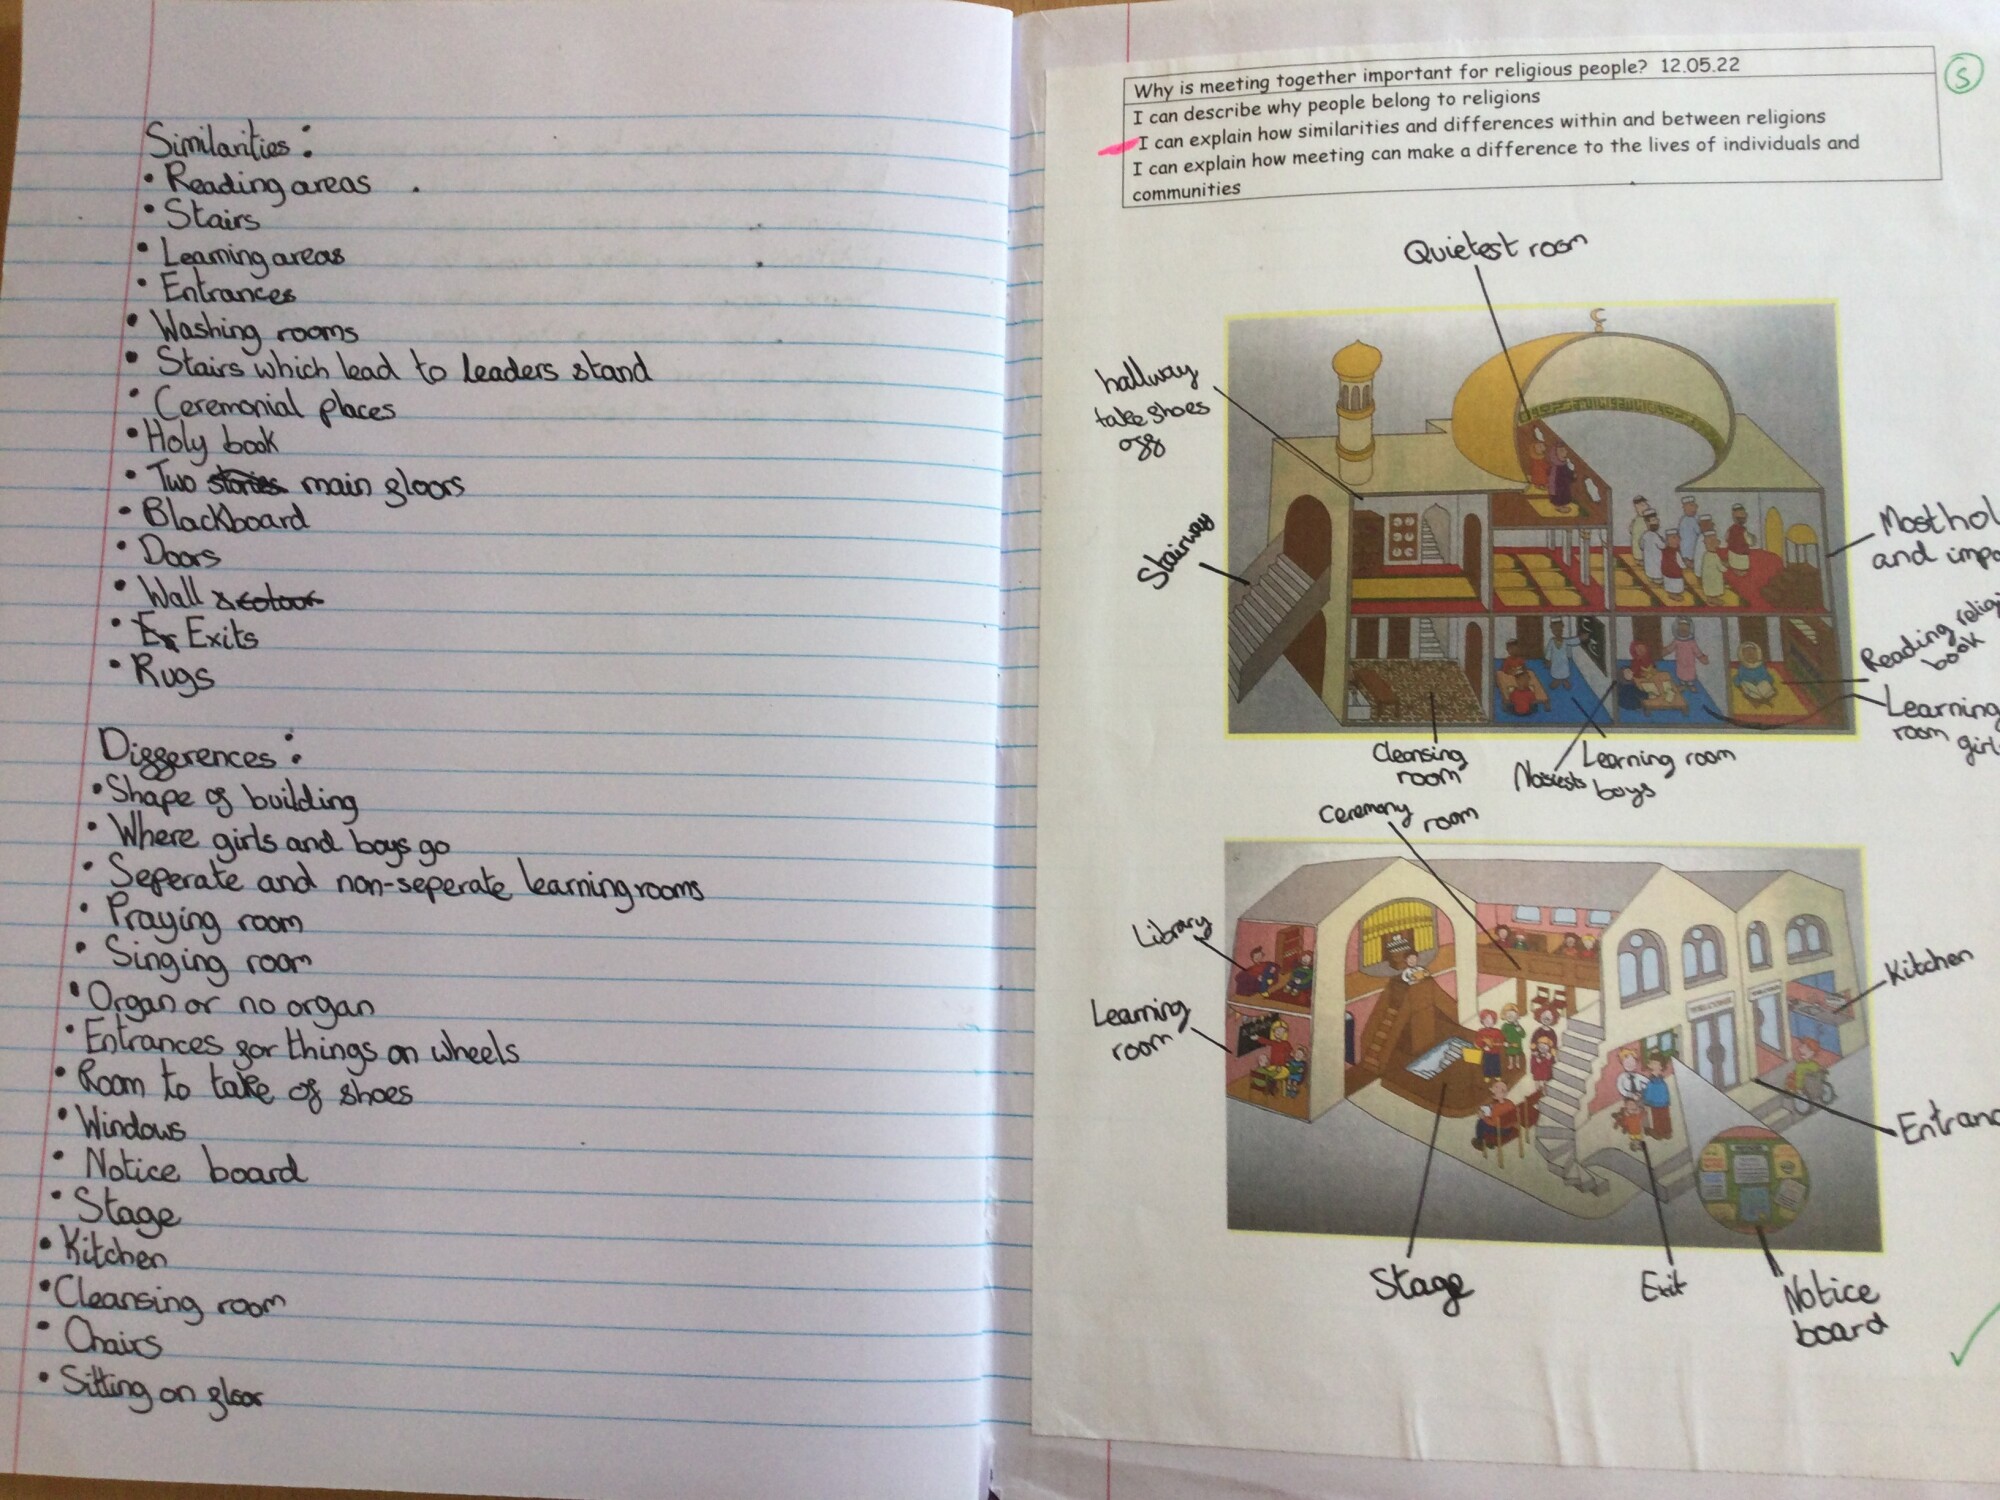 Similarities:
• Reading areas
• Stairs
• Learning areas
• Entrances
• Washing rooms
• Stairs which lead to leaders stand
• Ceremonial places
• Holy book
• Two stories main floors
• Blackboard
• Doors
• Wall & colour
• Ex Exits
• Rugs
Differences:
• Shape of building
• Where girls and boys go
• Seperate and non-seperate learning rooms
• Praying room
• Singing room
• Organ or no organ
• Entrances for things on wheels
• Room to take of shoes
• Windows
• Notice board
• Stage
• Kitchen
• Cleansing room
• Chairs
• Sitting on floor
Why is meeting together important for religious people? 12.05.22
I can describe why people belong to religions
I can explain how similarities and differences within and between religions
I can explain how meeting can make a difference to the lives of individuals and
communities
S
Quietest room
hallway
take shoes
off
Stairway
Most hol
and impo
Reading religi
book
Learning
room girl
Cleansing
room
Learning room
boys
Ceremony
room
Library
Learning
room
Kitchen
Entranc
Stage
Exit
Notice
board